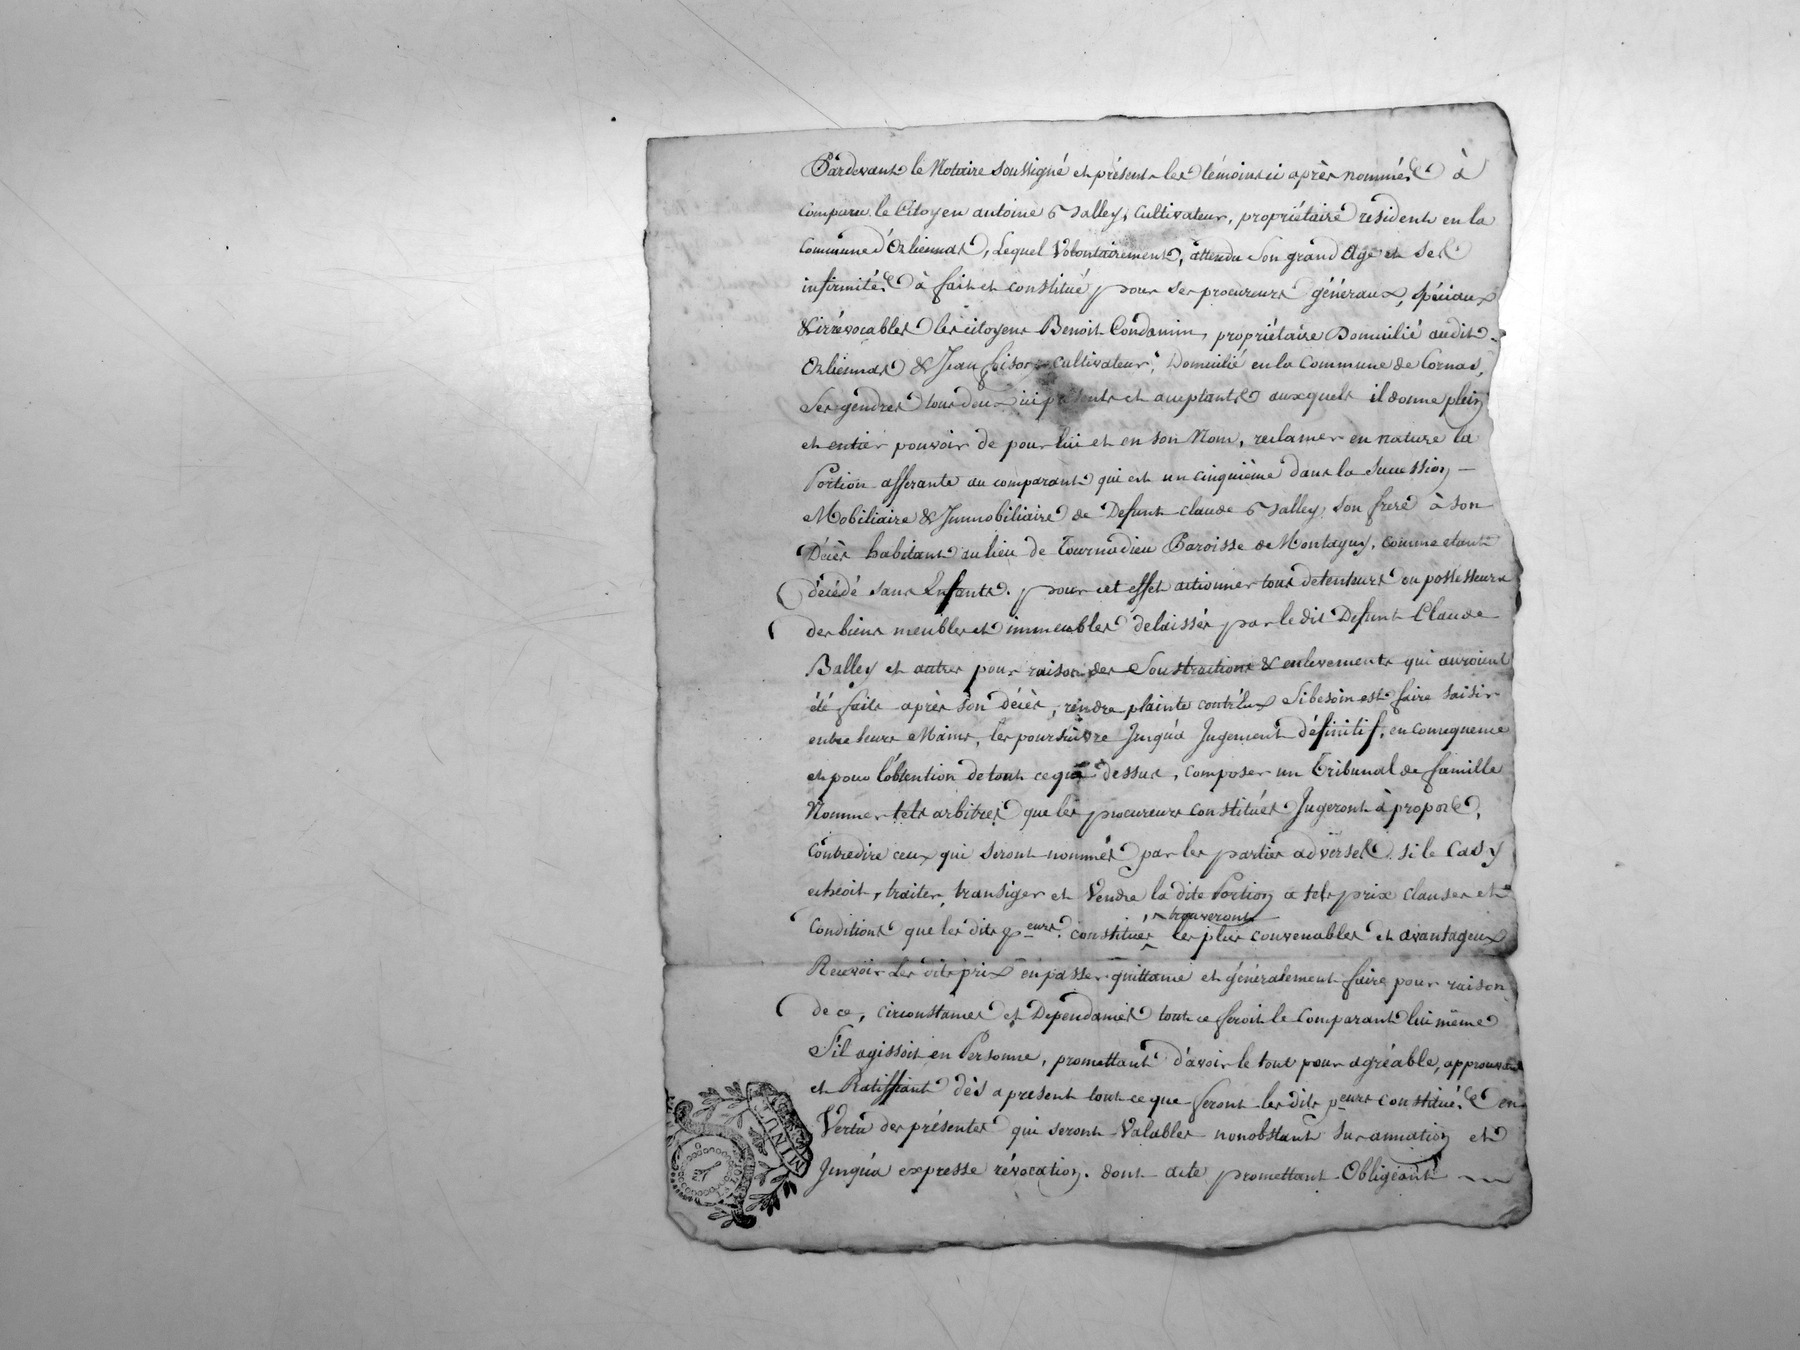 Pardevant le Notaire soussigné et présents les témoins ci après nommés à
comparu le Citoyen antoine Balley, Cultivateur, propriétaire resident en la
commune d'Orliennas, Lequel Volontairement, attendu son grand Age et ses
infirmités à fait et constitué pour ses procureurs généraux, spéciaux
& irrévocables les citoyens Benoit Condamin, propriétaire Domicilié audit
Orliennas & Jean cultivateur, Domicilié en la Commune de Cornas,
Ses gendres tous deux ici présents et acceptants auxquels il donne plein
et entier pouvoir de pour lui et en son Nom, reclamer en nature la
Portion afferante au comparant qui est un cinquième dans la succession
Mobiliaire & Immobiliaire de Defunt claude Balley, son frere à son
Décès habitant au lieu de Tournadieu Paroisse de Montagny, comme etant
décédé sans Enfants. pour cet effet actionner tous detenteurs ou possesseurs
des biens meubles et immeubles delaissés par le dit Defunt Claude
Balley et autres pour raison des Soustractions & enlevements qui auroient
été faits après son décès, rendre plainte contr'eux Si besoin est faire saisir
entre leurs Mains, les poursuivre Jusqu'a Jugement définitif, en consequence
et pour l'obtention de tout ce que dessus, composer un Tribunal de famille
Nommer tels arbitres que les procureurs constitués Jugeront à propos,
Contredire ceux qui seront nommés par les parties adverses si le Cas y
echeoit, traiter, transiger et Vendre la dite Portion a tels prix clauses et
trouveront
Conditions que les dits peurs constitués les plus convenables et avantageux
Recevoir Les dits prix en passer quittance et généralement faire pour raison
de ce, circonstances et Dependances tout ce feroit le Comparant lui même
S'il agissoit en Personne, promettant d'avoir le tout pour agréable, approuvant
et Ratiffiant dès a present tout ce que feront les dits peurs constitués en
Vertu des présentes qui seront Valables nonobstant surannation et
Jusqu'a expresse révocation. dont acte promettant Obligeant
MINUT